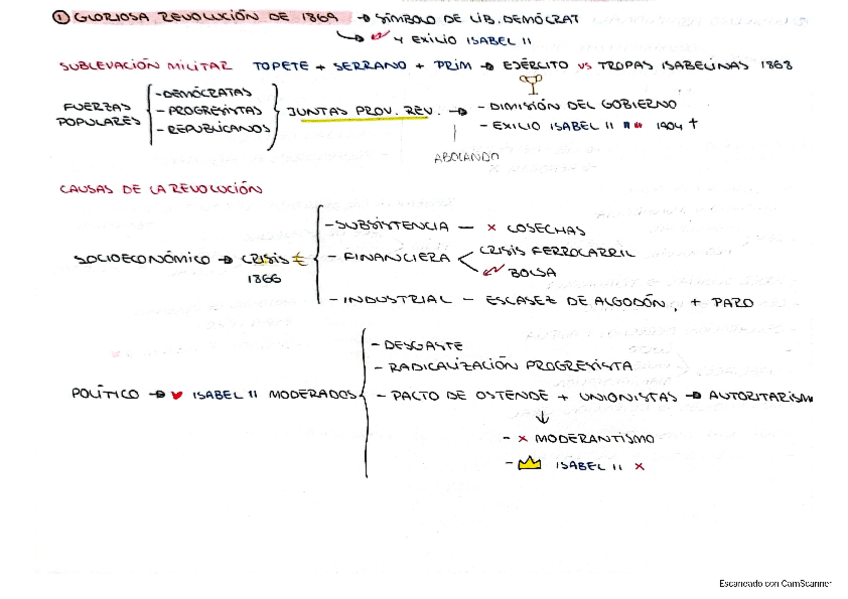 ① GLORIOSA REVOLUCIÓN DE 1869 → SÍMBOLO DE LIB. DEMÓCRAT
Y EXILIO ISABEL II
SUBLEVACIÓN MILITAR TOPETE + SERRANO + PRIM → EJÉRCITO VS TROPAS ISABELINAS 1868
FUERZAS POPULARES
- DEMÓCRATAS
- PROGRESISTAS
- REPUBLICANOS
JUNTAS PROV. REV. →
- DIMISIÓN DEL GOBIERNO
- EXILIO ISABEL II 1904 †
ABOLANDO
CAUSAS DE LA REVOLUCIÓN
SOCIOECONÓMICO → CRISIS € 1866
- SUBSISTENCIA — × COSECHAS
- FINANCIERA < CRISIS FERROCARRIL
BOLSA
- INDUSTRIAL - ESCASEZ DE ALGODÓN, + PARO
POLÍTICO → ♥ ISABEL II MODERADOS
- DESGASTE
- RADICALIZACIÓN PROGRESISTA
- PACTO DE OSTENDE + UNIONISTAS → AUTORITARISM
↓
- × MODERANTISMO
- ISABEL II ×
Escaneado con CamScanner